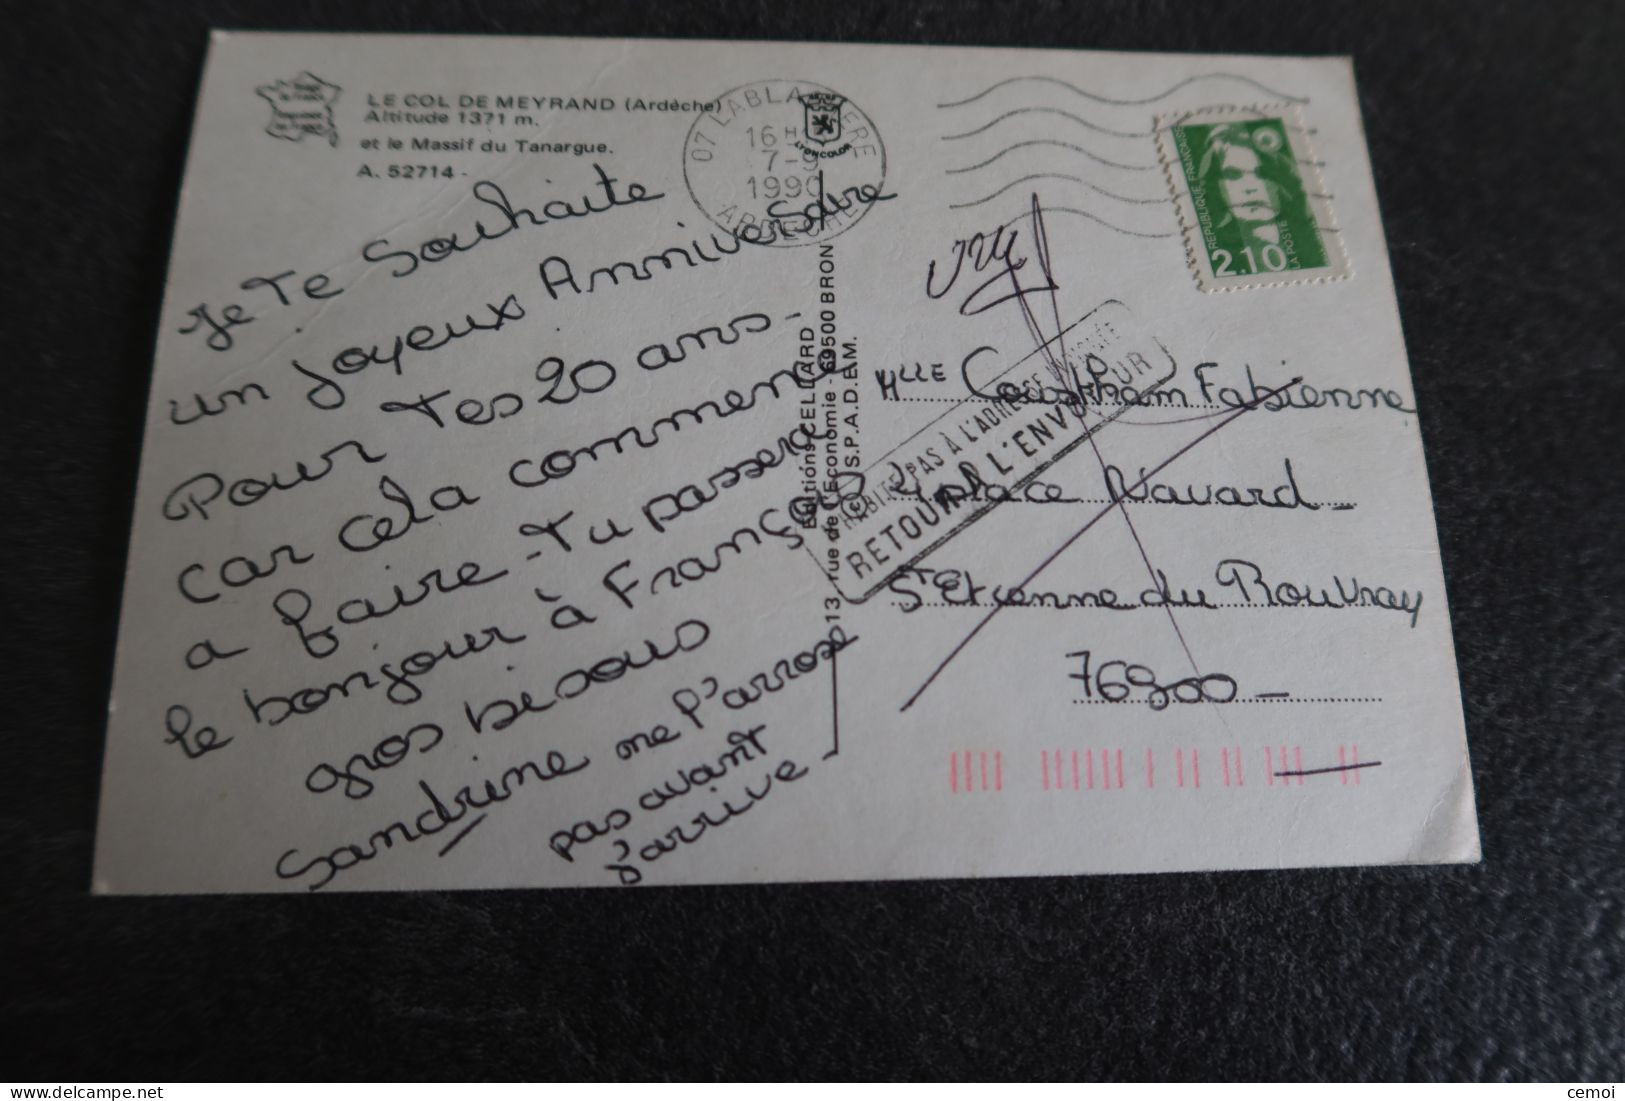 LE COL DE MEYRAND (Ardèche)
Altitude 1371 m.
et le Massif du Tanargue.
A. 52714 -
Je Te Souhaite
un joyeux Anniversaire
Pour Tes 20 ans -
car cela commence
a faire - Tu passera
le bonjour à François
gros bisous
Sandrine
me l'arrose
pas avant
j'arrive
07 LABLACHERE
16 H
7-9
1990
ARDECHE
LYONCOLOR
Editions CELLARD
13, rue de l'Economie - 69500 BRON
S.P.A.D.E.M.
REPUBLIQUE FRANÇAISE
LA POSTE
2,10
N'HABITE PAS À L'ADRESSE INDIQUÉE
RETOUR À L'ENVOYEUR
Mlle Fabienne
place Navard -
St Etienne du Rouvray
76800 -
cemoi